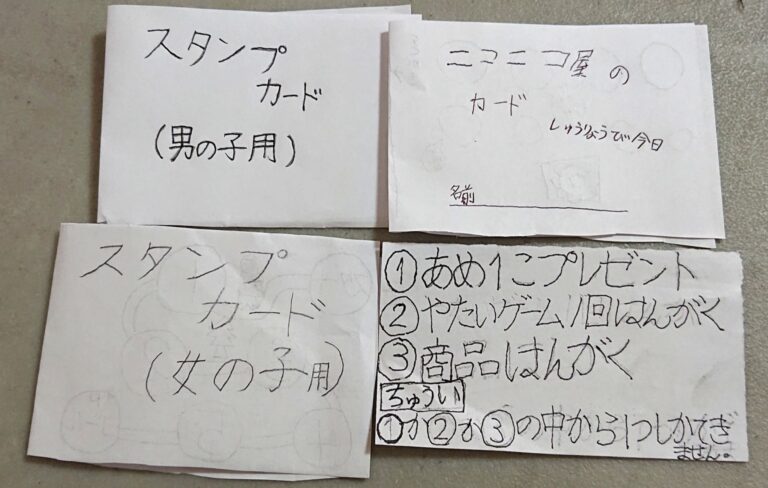 スタンプ
カード
(男の子用)
ニコニコ屋の
カード
しゅうりょうび今日
名前
スタンプ
カード
(女の子用)
①あめ1こプレゼント
②やたいゲーム1回はんがく
③商品はんがく
ちゅうい
①か②か③の中から1つしかできません。